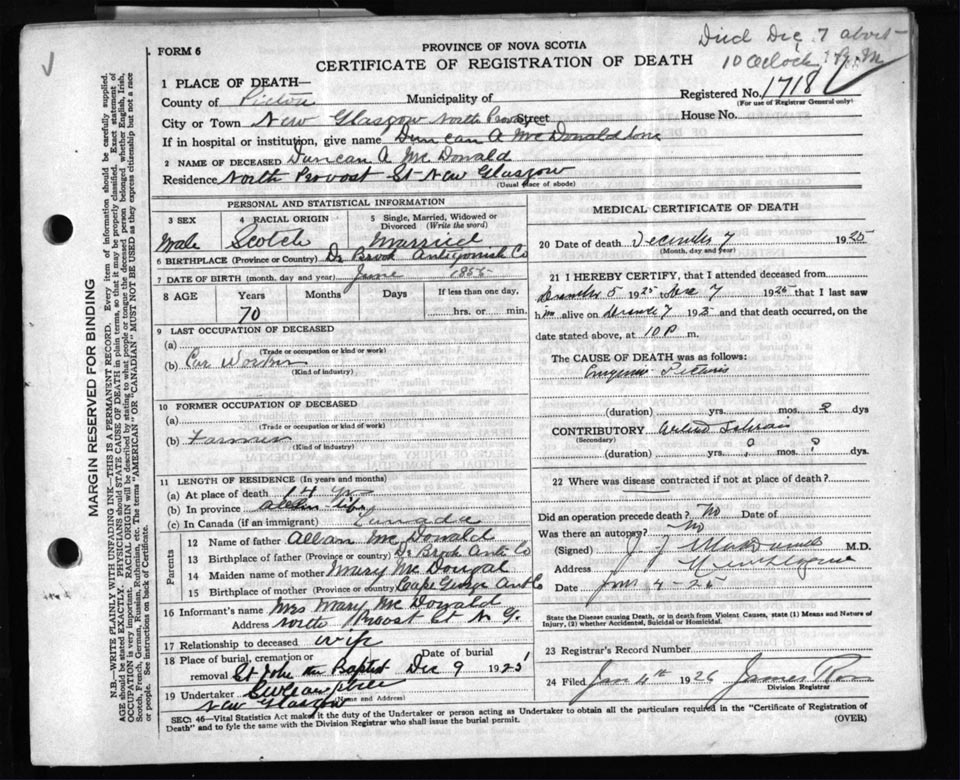 Died Dec 7 about
10 Oclock P.M
FORM 6
PROVINCE OF NOVA SCOTIA
CERTIFICATE OF REGISTRATION OF DEATH
1 PLACE OF DEATH—
Registered No. 1718
(For use of Registrar General only)
County of Pictou Municipality of
City or Town New Glasgow North Provost Street House No.
If in hospital or institution, give name Duncan A McDonald
2 NAME OF DECEASED Duncan A McDonald
Residence North Provost St New Glasgow
(Usual place of abode)
PERSONAL AND STATISTICAL INFORMATION
3 SEX
Male
4 RACIAL ORIGIN
Scotch
5 Single, Married, Widowed or Divorced (Write the word)
Married
6 BIRTHPLACE (Province or Country) Dr Brook Antigonish Co
7 DATE OF BIRTH (month, day and year) June 1855
8 AGE
Years Months Days If less than one day,
70 hrs. or min.
9 LAST OCCUPATION OF DECEASED
(a)
(Trade or occupation or kind of work)
(b) Car Worker
(Kind of industry)
10 FORMER OCCUPATION OF DECEASED
(a)
(b) Farmer
(Kind of industry)
11 LENGTH OF RESIDENCE (In years and months)
(a) At place of death 14 yr
(b) In province all his life
(c) In Canada (if an immigrant) Canada
Parents
12 Name of father Allan McDonald
13 Birthplace of father (Province or country) Dr Brook Anti Co
14 Maiden name of mother Mary McDougal
15 Birthplace of mother (Province or country) Cape George Ant Co
16 Informant's name Mrs Mary McDonald
Address North Provost St N G.
17 Relationship to deceased wife
18 Place of burial, cremation or removal St John the Baptist Date of burial Dec 9 1925
19 Undertaker
Name and Address
New Glasgow
MEDICAL CERTIFICATE OF DEATH
20 Date of death December 7 1925
(Month, day and year)
21 I HEREBY CERTIFY, that I attended deceased from
December 5 1925 to Dec 7 1925 that I last saw
him alive on December 7 1925 and that death occurred, on the
date stated above, at 10 P m.
The CAUSE OF DEATH was as follows:
(duration) yrs. mos. 2 dys
CONTRIBUTORY
(Secondary)
(duration) yrs. ? mos. ? dys.
22 Where was disease contracted if not at place of death?
Did an operation precede death? No Date of
Was there an autopsy? No
(Signed) J J MacDonald M.D.
Address New Glasgow
Date Jan 4-26
State the Disease causing Death, or in death from Violent Causes, state (1) Means and Nature of
Injury, (2) whether Accidental, Suicidal or Homicidal.
23 Registrar's Record Number
24 Filed Jan 4th 1926 James Ross
Division Registrar
SEC: 46—Vital Statistics Act makes it the duty of the Undertaker or person acting as Undertaker to obtain all the particulars required in the "Certificate of Registration of
Death" and to fyle the same with the Division Registrar who shall issue the burial permit. (OVER)
MARGIN RESERVED FOR BINDING
N.B.—WRITE PLAINLY WITH UNFADING INK—THIS IS A PERMANENT RECORD. Every item of information should be carefully supplied.
AGE should be stated EXACTLY. PHYSICIANS should STATE CAUSE OF DEATH in plain terms, so that it may be properly classified. Exact statement of
OCCUPATION is very important. RACIAL ORIGIN will be described by stating to what people or tongue the deceased person belonged whether English, Irish,
Scotch, French, German, Russian, Ruthenian, etc. The terms "AMERICAN" OR "CANADIAN" MUST NOT BE USED as they express citizenship but not a race
or people. See instructions on back of Certificate.